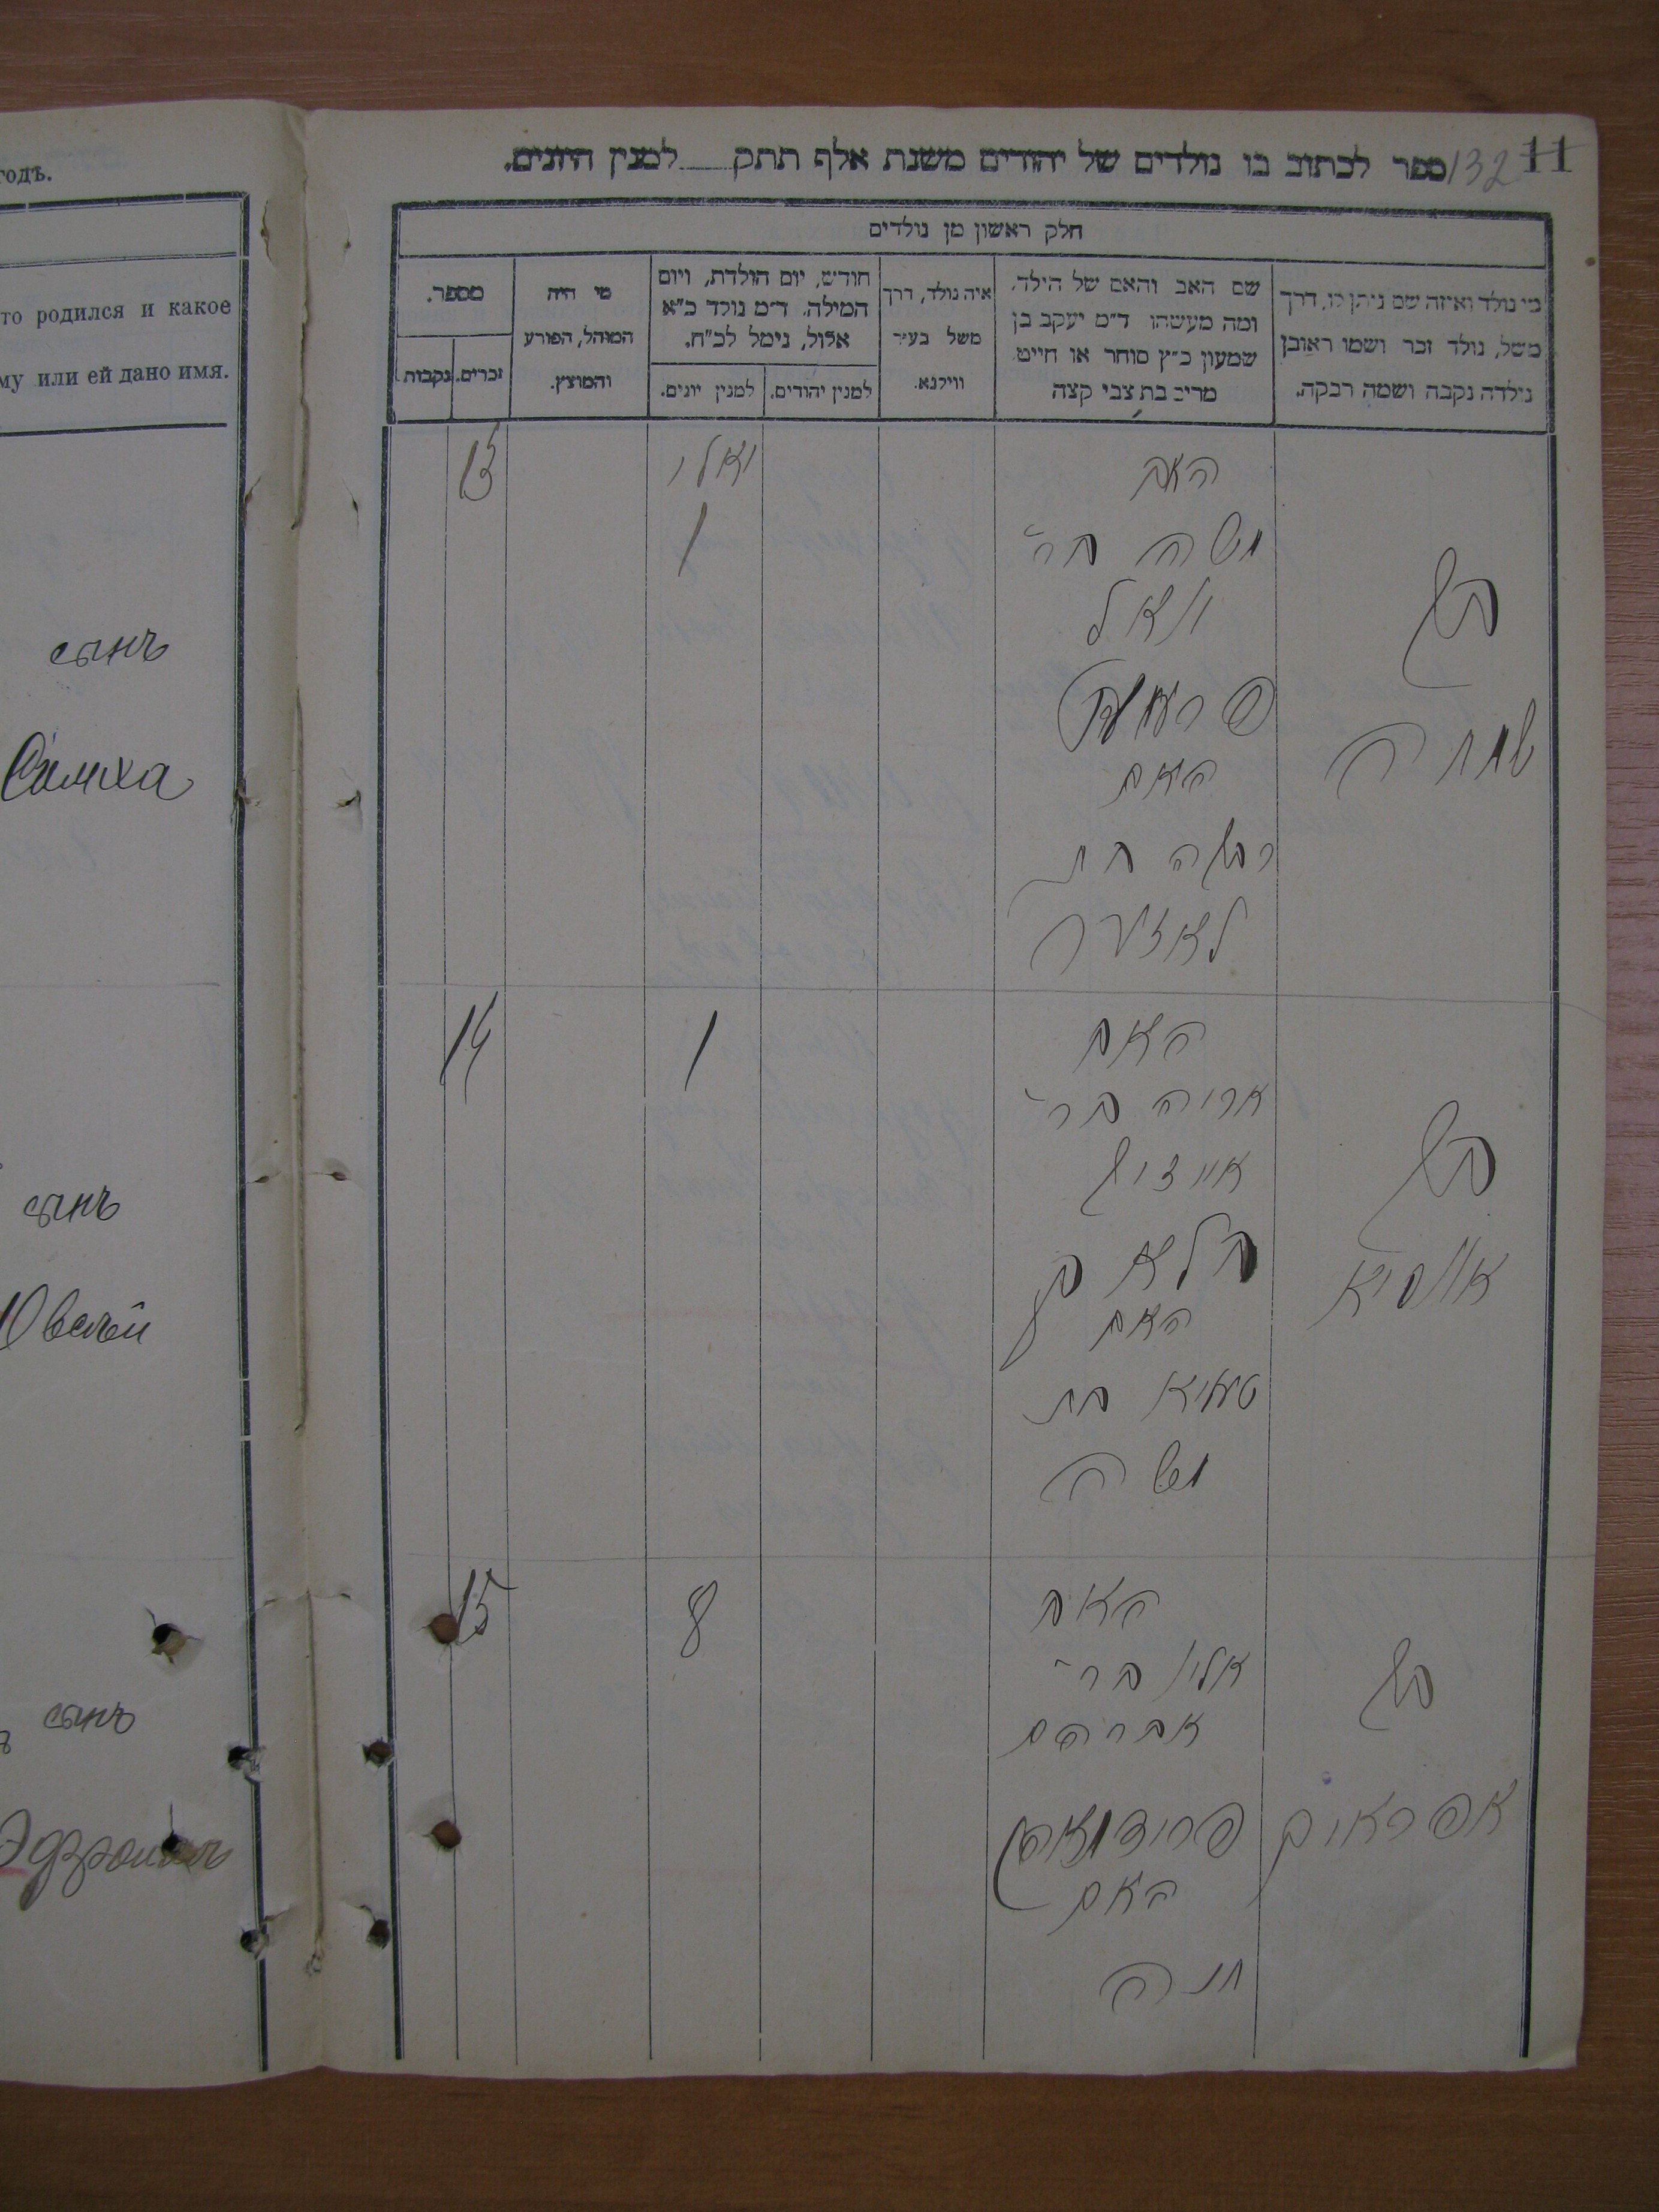 годъ.
то родился и какое
му или ей дано имя.
сынъ
Симха
сынъ
сынъ
11
132
ספר לכתוב בו נולדים של יהודים משנת אלף תתק למנין היונים.
חלק ראשון מן נולדים
מי נולד ואיזה שם ניתן לו, דרך
משל, נולד זכר ושמו ראובן
נולדה נקבה ושמה רבקה.
שם האב והאם של הילד,
ומה מעשהו ד״מ יעקב בן
שמעון כ״ץ סוחר או חייט
מרים בת צבי קצה
איה נולד, דרך
משל בעיר
ווילנא.
חודש, יום הולדת, ויום
המילה. ד״מ נולד כ״א
אלול, נימל לכ״ח.
למנין יהודים.
למנין יונים.
מי היה
המוהל, הפורע
והמוצץ.
מספר.
זכרים.
נקבות
בן
שמחה
האב
משה בר׳
האם
בת
1
13
בן
האב
אריה בר׳
אייזיק
האם
בת
משה
1
14
בן
אפראים
האב
אלי׳ בר׳
אברהם
פרידמאן
האם
חנה
8
15